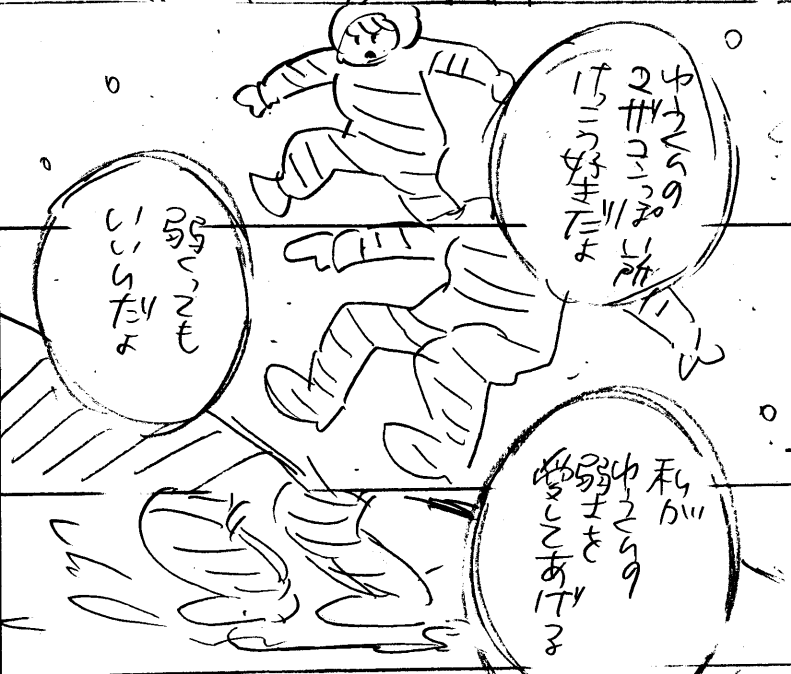 ゆうくんの
マザコンっぽい所
けっこう好きだよ
弱くっても
いいんだよ
私が
ゆうくんの
弱さを
愛してあげる